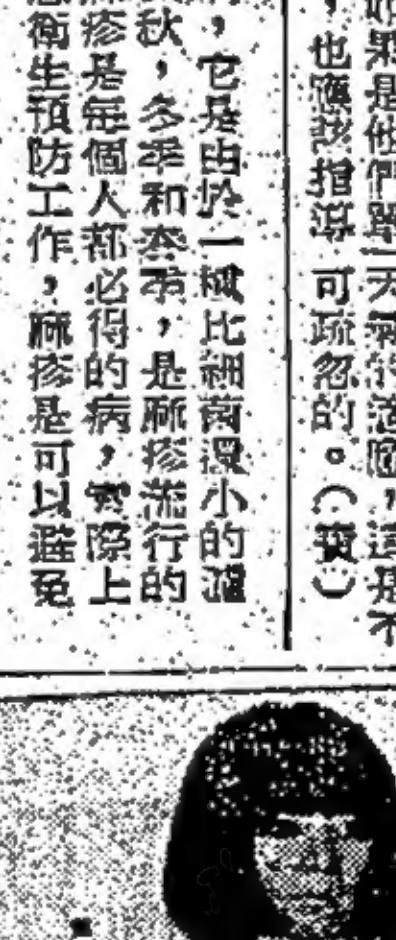 如果是他們單一天氣的活動，這是不
，也應該指導 可疏忽的。（寶）
，它是由於一種比細菌還小的濾
秋，冬季和春季，是麻疹流行的
麻疹是每個人都必得的病，實際上
衛生預防工作，麻疹是可以避免